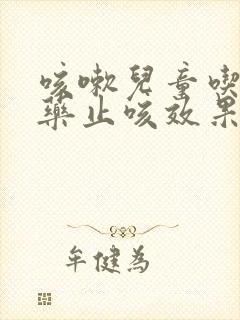 咳嗽兒童喫
藥止咳效果
牟健為